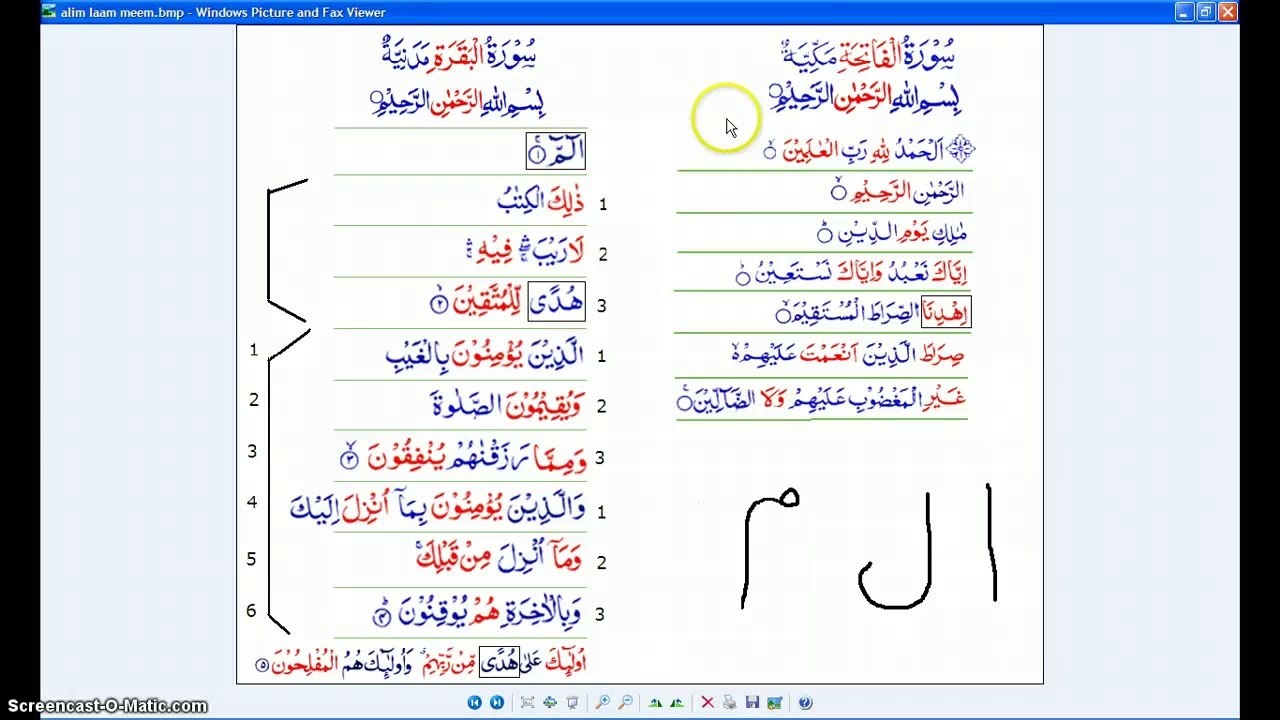 alim laam meem.bmp - Windows Picture and Fax Viewer
سُوْرَةُ الْفَاتِحَةِ مَكِّيَّةٌ
بِسْمِ اللهِ الرَّحْمٰنِ الرَّحِيْمِ
اَلْحَمْدُ لِلّٰهِ رَبِّ الْعٰلَمِيْنَ
الرَّحْمٰنِ الرَّحِيْمِ
مٰلِكِ يَوْمِ الدِّيْنِ
اِيَّاكَ نَعْبُدُ وَاِيَّاكَ نَسْتَعِيْنُ
اِهْدِنَا الصِّرَاطَ الْمُسْتَقِيْمَ
صِرَاطَ الَّذِيْنَ اَنْعَمْتَ عَلَيْهِمْ
غَيْرِ الْمَغْضُوْبِ عَلَيْهِمْ وَلَا الضَّآلِّيْنَ
ا ل م
سُوْرَةُ الْبَقَرَةِ مَدَنِيَّةٌ
بِسْمِ اللهِ الرَّحْمٰنِ الرَّحِيْمِ
الٓمّٓ ١
1 ذٰلِكَ الْكِتٰبُ
2 لَا رَيْبَ فِيْهِ
3 هُدًى لِّلْمُتَّقِيْنَ ٢
1 الَّذِيْنَ يُؤْمِنُوْنَ بِالْغَيْبِ 1
2 وَيُقِيْمُوْنَ الصَّلٰوةَ 2
3 وَمِمَّا رَزَقْنٰهُمْ يُنْفِقُوْنَ ٣ 3
1 وَالَّذِيْنَ يُؤْمِنُوْنَ بِمَآ اُنْزِلَ اِلَيْكَ 4
2 وَمَآ اُنْزِلَ مِنْ قَبْلِكَ 5
3 وَبِالْاٰخِرَةِ هُمْ يُوْقِنُوْنَ ٤ 6
اُولٰٓئِكَ عَلٰى هُدًى مِّنْ رَّبِّهِمْ وَاُولٰٓئِكَ هُمُ الْمُفْلِحُوْنَ ٥
Screencast-O-Matic.com